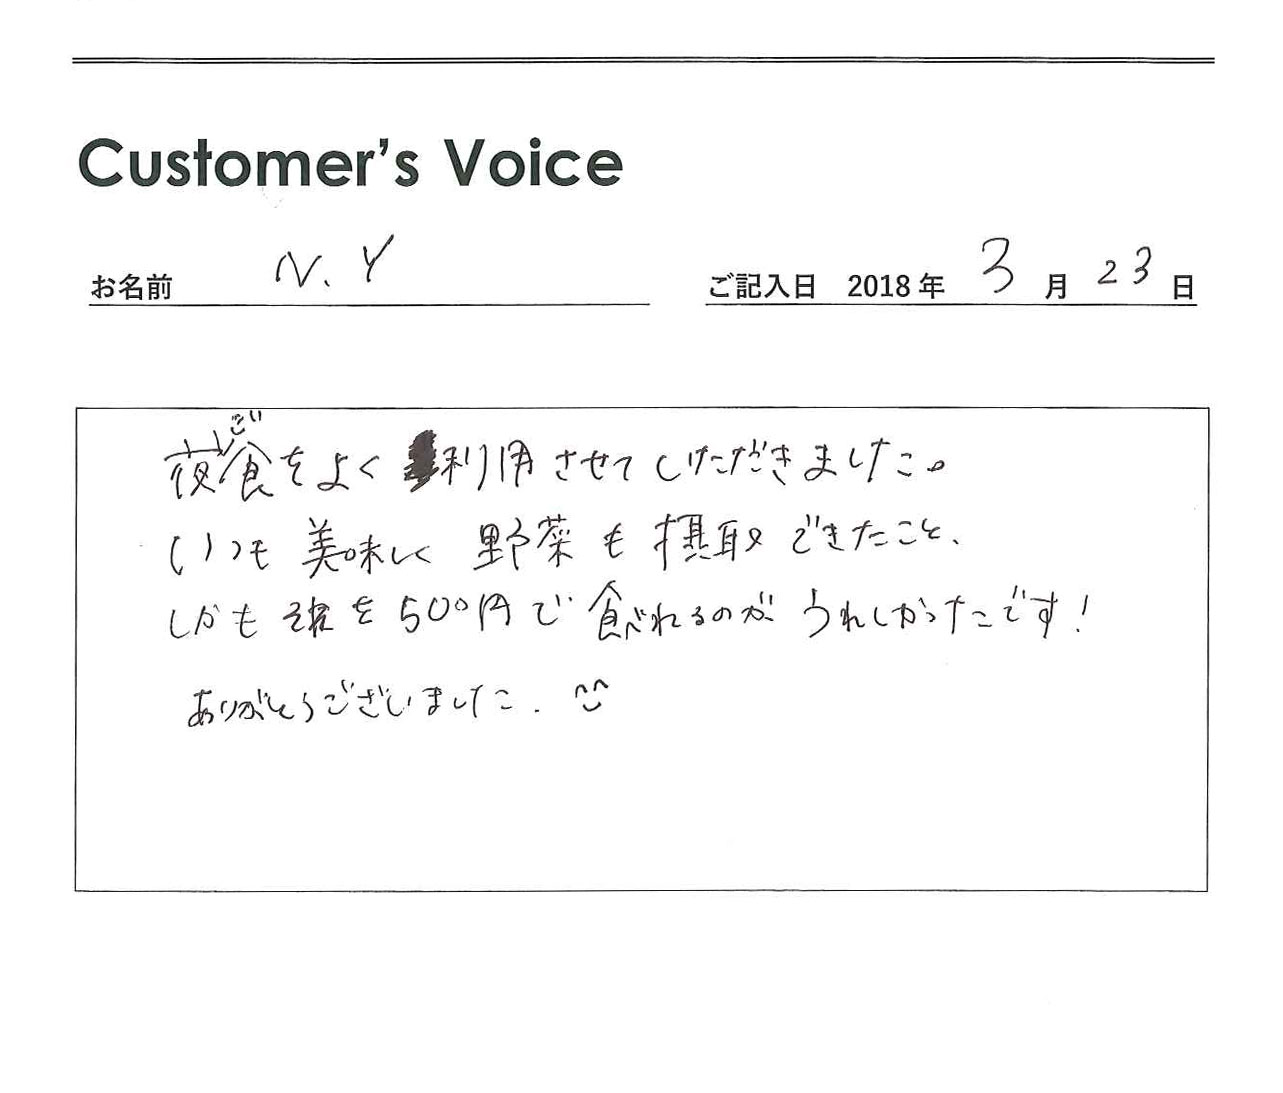 Customer's Voice
お名前 N.Y
ご記入日 2018年 3月 23日
夜ご食をよく利用させていただきました。
いつも美味しく 野菜も摂取できたこと、
しかもそれを500円で食べれるのがうれしかったです!
ありがとうございました. ^^